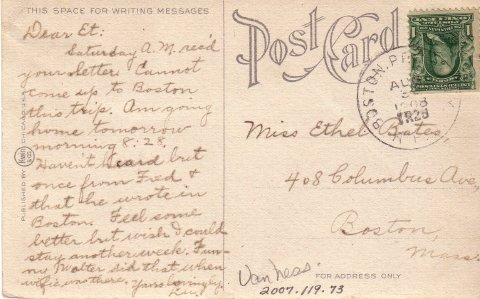 THIS SPACE FOR WRITING MESSAGES
Dear Et:
Saturday A.M. rec'd
your letter. Cannot
come up to Boston
this trip. Am going
home tomorrow
morning 8:28.
Haven't heard but
once from Fred &
that he wrote in
Boston. Feel some
better but wish I could
stay another week. Fun-
ny Walter did that when
wife's another. Yours lovingly,
Post Card
BOSTON
AUG
1908
Miss Ethel Bates,
408 Columbus Ave,
Boston,
Mass.
FOR ADDRESS ONLY
Van Ness.
2007.119.73
PUBLISHED BY